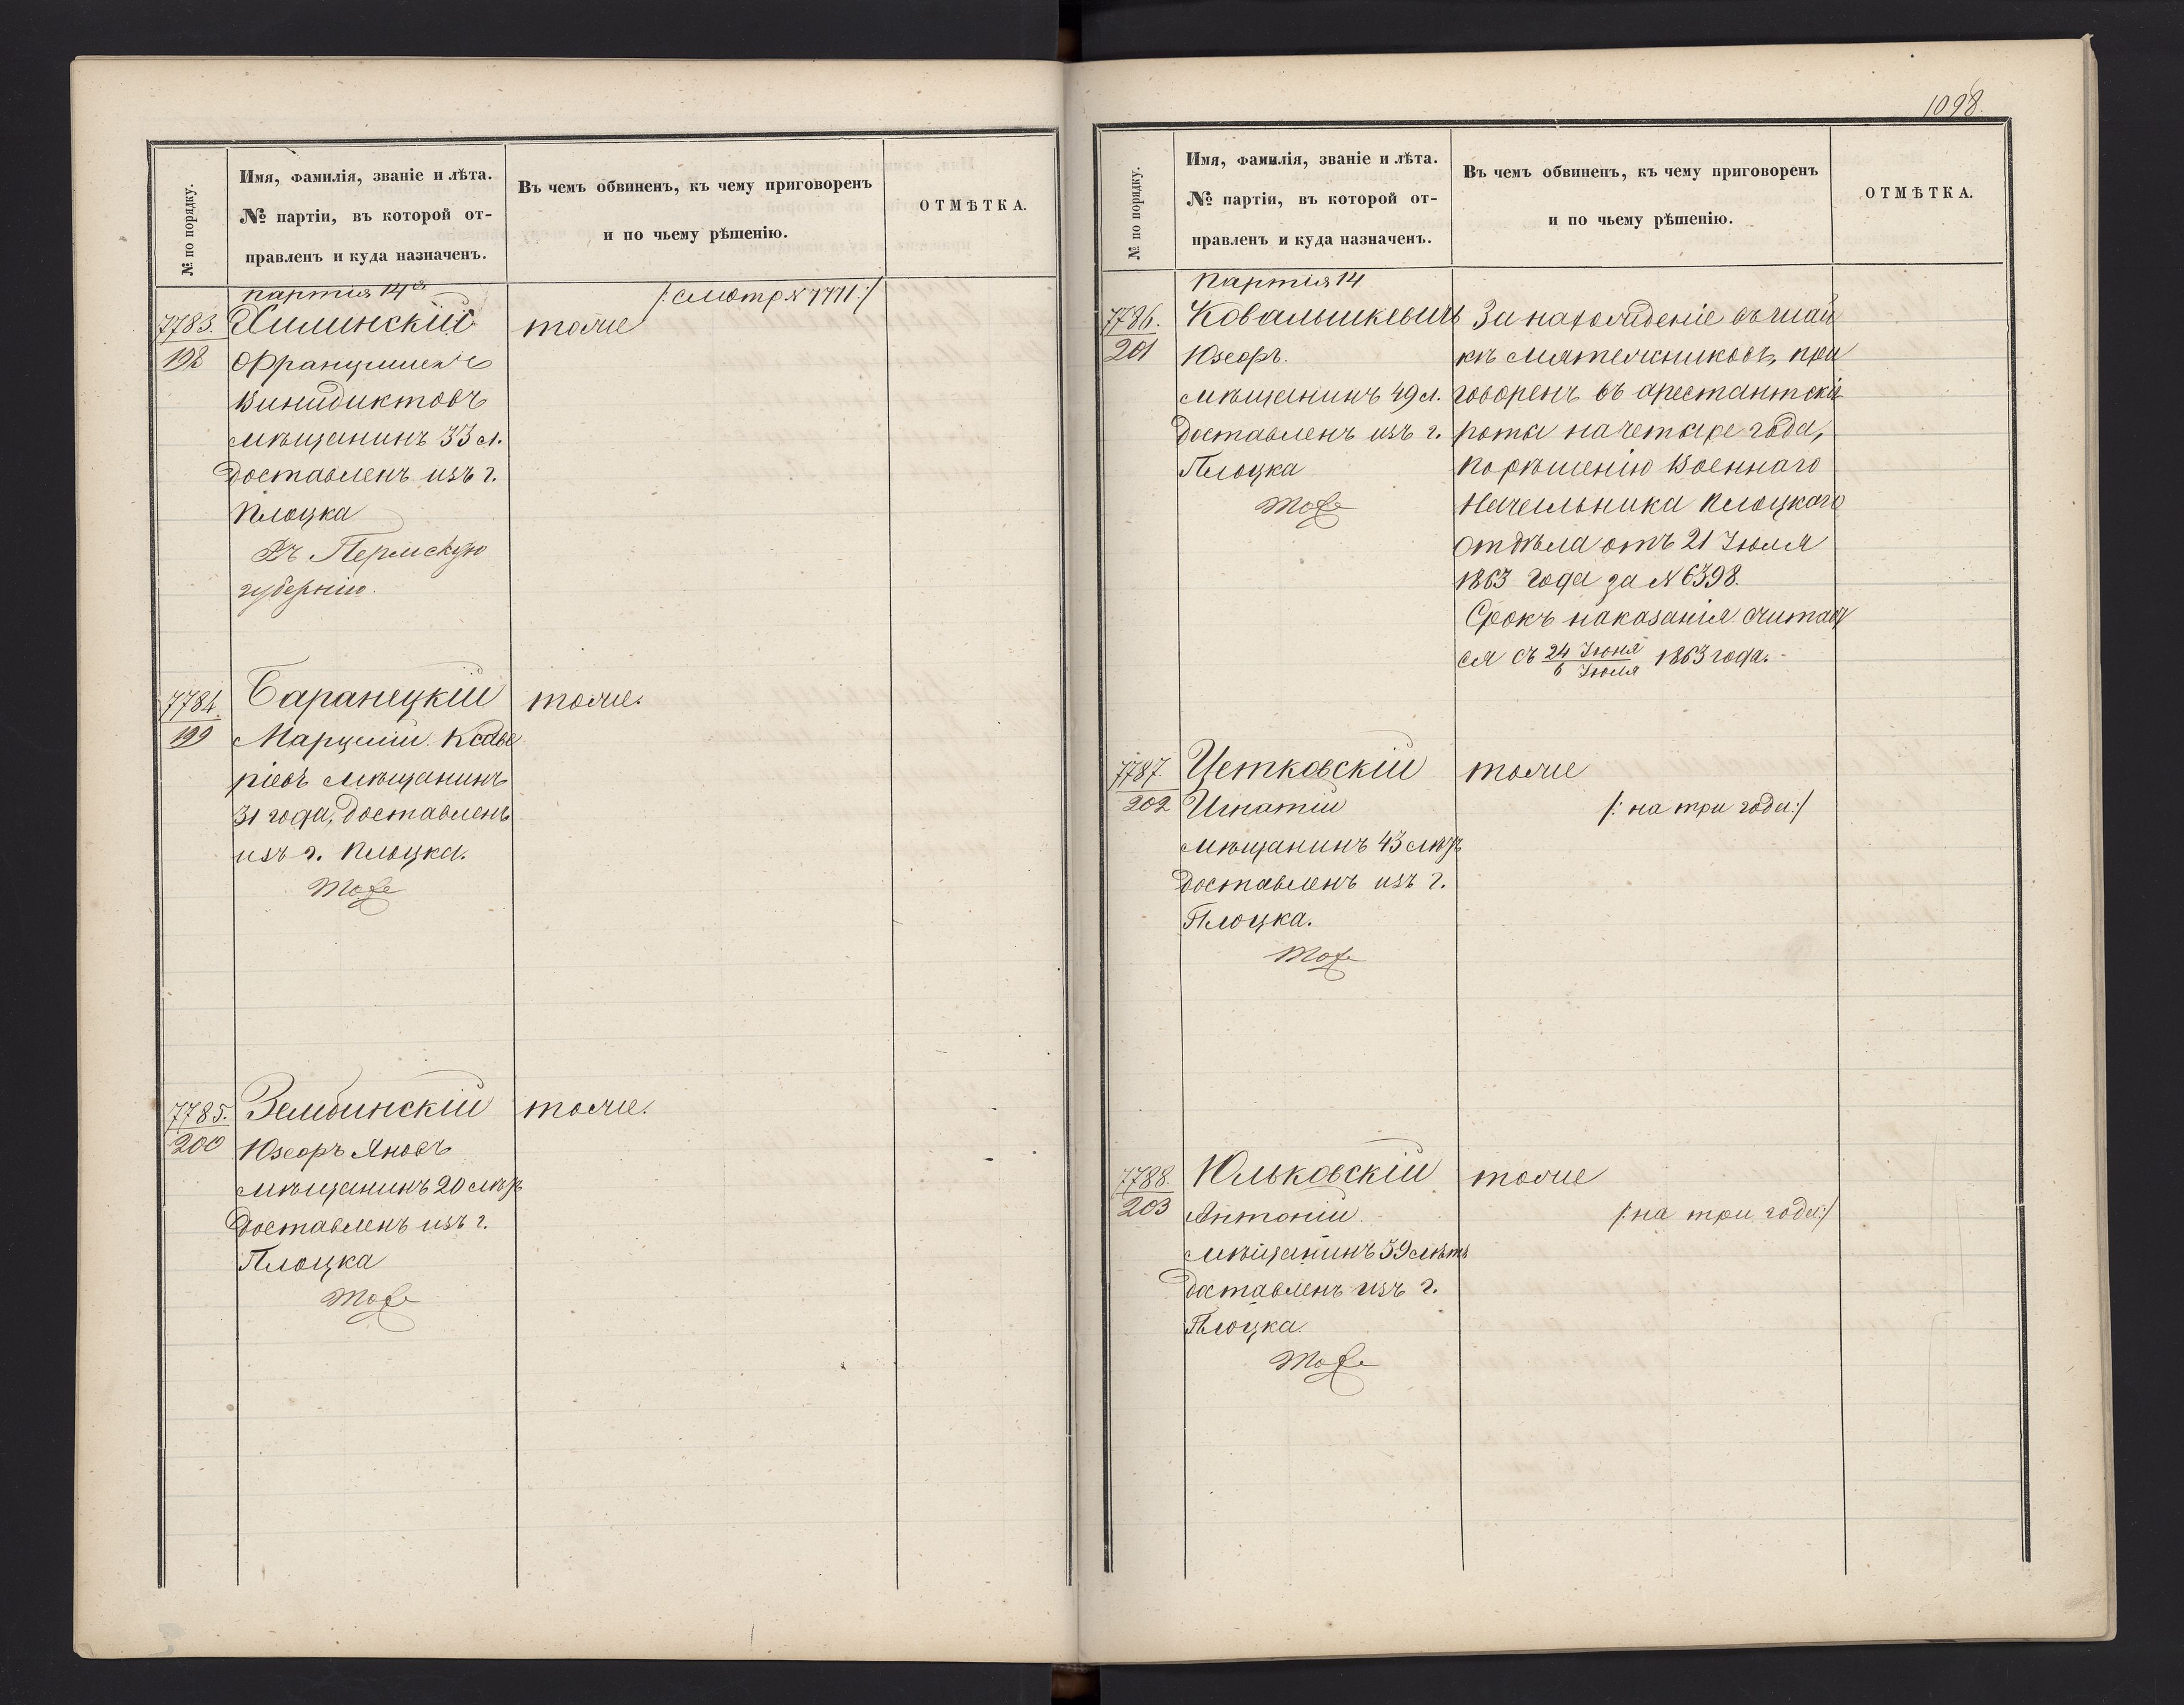 № по порядку.
Имя, фамилія, званіе и лѣта.
№ партіи, въ которой от-
правленъ и куда назначенъ.
Въ чемъ обвиненъ, къ чему приговоренъ
и по чьему рѣшенію.
ОТМѢТКА.
партія 14я
/: смотр № 7771 :/
7783.
198
Хилинскій
тоже
Францишекъ
Винидиктовъ
мѣщанинъ 33 л.
доставленъ изъ г.
Плоцка
Въ Пермскую
губернію.
7784.
199
Баранецкій
тоже.
Марцелій Ксаве
ріевъ мѣщанинъ
31 года, доставленъ
изъ г. Плоцка.
Тоже
7785.
200
Зембинскій
тоже.
Юзефъ Яновъ
мѣщанинъ 20 лѣтъ
доставленъ изъ г.
Плоцка
Тоже
1098.
№ по порядку.
Имя, фамилія, званіе и лѣта.
№ партіи, въ которой от-
правленъ и куда назначенъ.
Въ чемъ обвиненъ, къ чему приговоренъ
и по чьему рѣшенію.
ОТМѢТКА.
Партія 14
7786.
201
Ковалышкевичъ
Юзефъ.
мѣщанинъ 49 л.
доставленъ изъ г.
Плоцка
Тоже
За нахожденіе въ шай
кѣ мятежниковъ, при
говоренъ въ арестантскія
роты на четыре года,
по рѣшенію Военнаго
Начальника Плоцкаго
Отдѣла отъ 21 Іюля
1863 года за N 6398.
Срокъ наказанія считает
ся съ 24 Іюня / 6 Іюля 1863 года.
7787.
202
Цетковскій
тоже
Игнатій
/: на три года :/
мѣщанинъ 43 лѣтъ
доставленъ изъ г.
Плоцка.
Тоже
7788.
203
Юльковскій
тоже
Антоній
/: на три года :/
мѣщанинъ 39 лѣтъ
доставленъ изъ г.
Плоцка.
Тоже